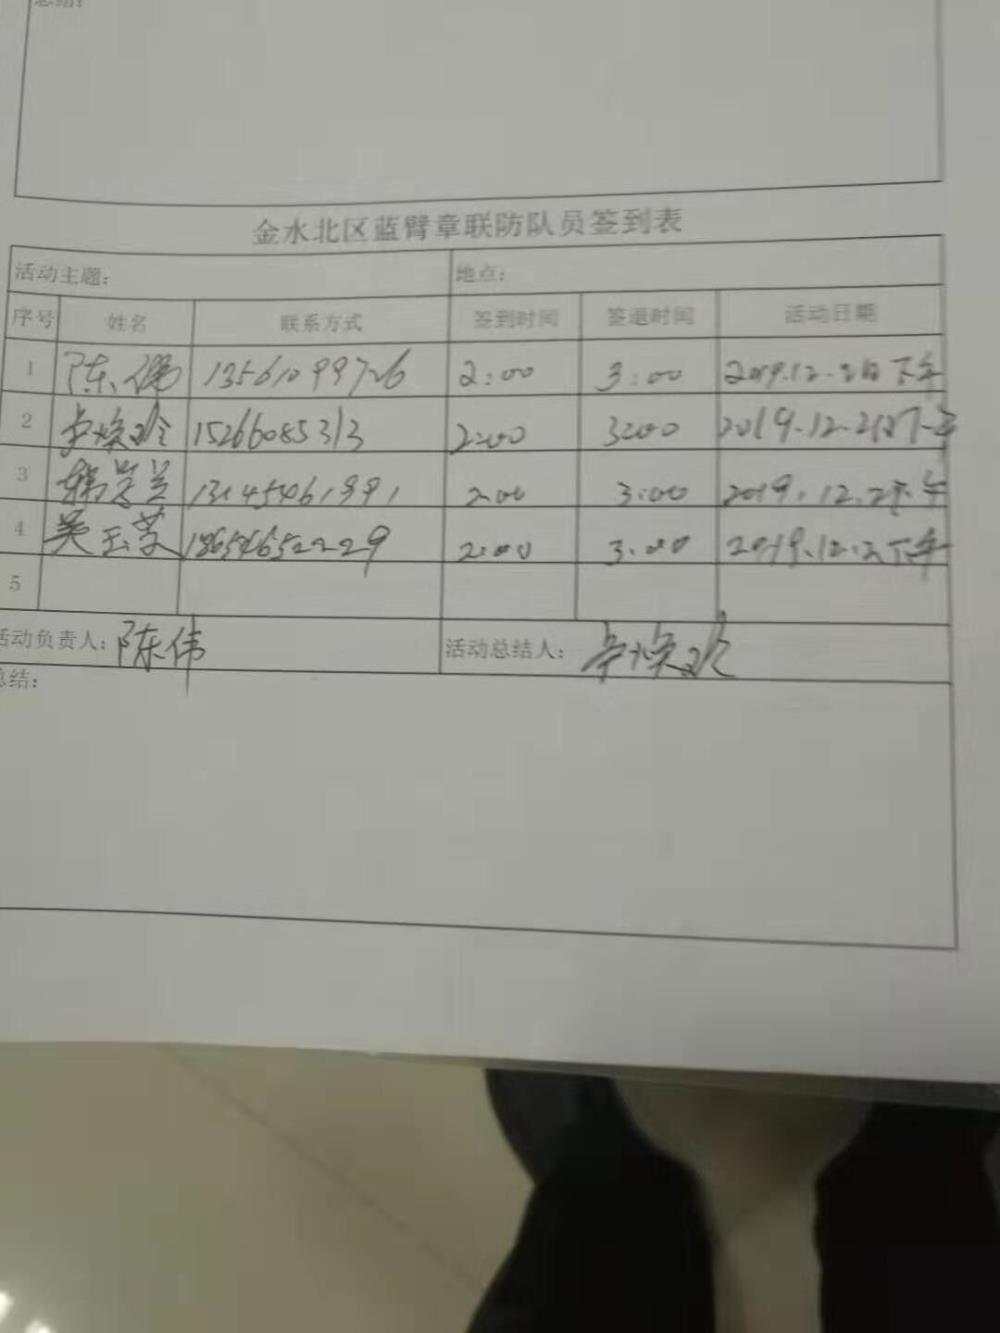 总结:
金水北区蓝臂章联防队员签到表
活动主题: 地点:
序号 姓名 联系方式 签到时间 签退时间 活动日期
1 陈伟 13561099726 2:00 3:00 2019.12.2日下午
2 15266085313 2:00 3:00 2019.12.2日下午
3 2:00 3:00 2019.12.2下午
4 吴玉芬 18654652229 2:00 3:00 2019.12.2下午
5
活动负责人: 陈伟 活动总结人:
总结: